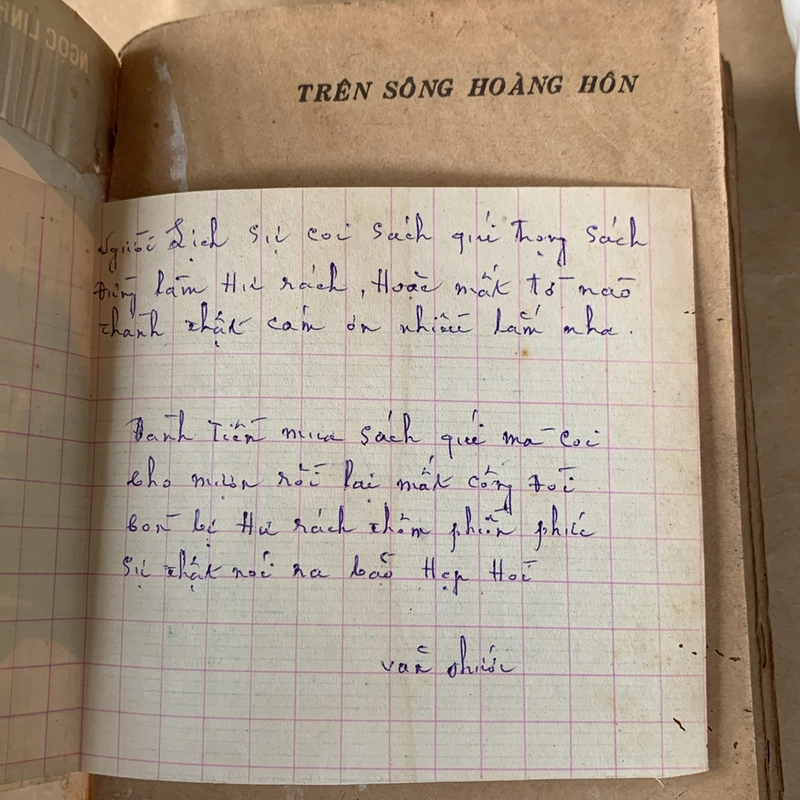 NGỌC LINH
TRÊN SÔNG HOÀNG HÔN
Người Lịch Sự coi Sách quí Trọng Sách
Đừng làm Hư rách, Hoặc mất tờ nào
thành thật cám ơn nhiều lắm nha.
Dành Tiền mua Sách quí mà coi
cho mượn rồi lại mất công đòi
còn bị Hư rách thêm phiền phức
Sự thật nói ra bảo Hẹp Hòi